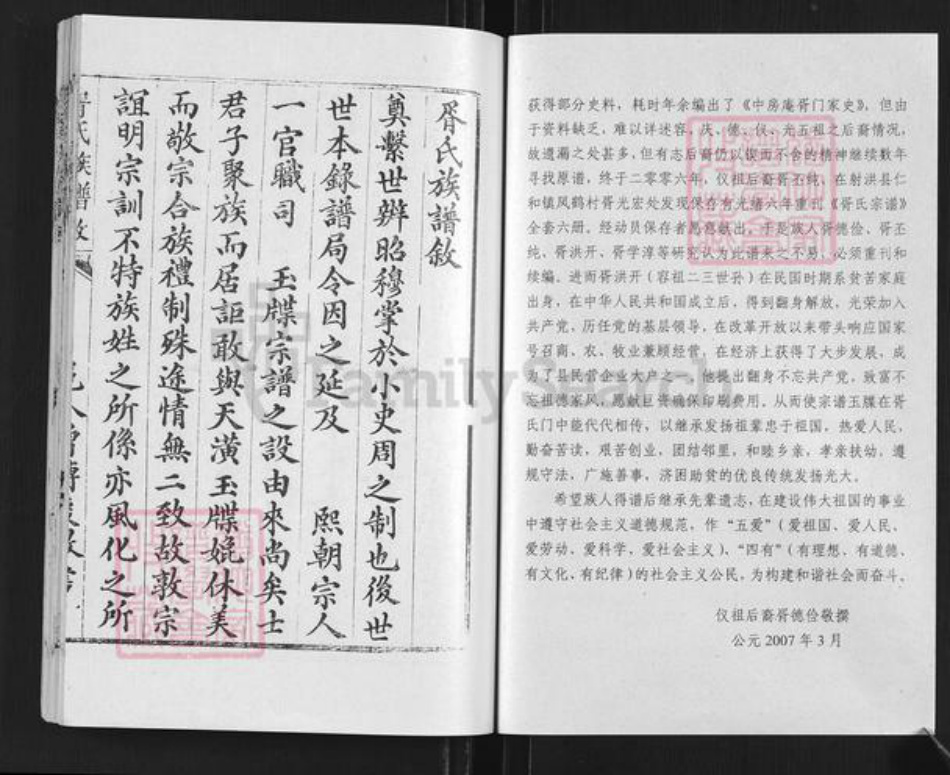 胥氏族譜敘
奠繫世辨昭穆掌於小史周之制也後世
世本錄譜局令因之延及 熙朝宗人
一官職司 玉牒宗譜之設由來尚矣士
君子聚族而居詎敢與天潢玉牒媲休美
而敬宗合族禮制殊途情無二致故敦宗
誼明宗訓不特族姓之所係亦風化之所
胥氏族譜敘
获得部分史料，耗时年余编出了《中房庵胥门家史》，但由
于资料缺乏，难以详述容、庆、德、仪、光五祖之后裔情况，
故遗漏之处甚多，但有志后裔仍以锲而不舍的精神继续数年
寻找原谱，终于二零零六年，仪祖后裔胥丕纯，在射洪县仁
和镇凤鹤村胥光宏处发现保存有光绪六年重刊《胥氏宗谱》
全套六册。经动员保存者愿意献出，于是族人胥德俭、胥丕
纯、胥洪开、胥学淳等研究认为此谱来之不易，必须重刊和
续编。进而胥洪开（容祖二三世孙）在民国时期系贫苦家庭
出身，在中华人民共和国成立后，得到翻身解放，光荣加入
共产党，历任党的基层领导，在改革开放以来带头响应国家
号召商、农、牧业兼顾经营，在经济上获得了大步发展，成
为了县民营企业大户之一，他提出翻身不忘共产党，致富不
忘祖德家风，愿献巨资确保印刷费用，从而使宗谱玉牒在胥
氏门中能代代相传，以继承发扬祖辈忠于祖国，热爱人民，
勤奋苦读，艰苦创业，团结邻里，和睦乡亲，孝亲扶幼，遵
规守法，广施善事，济困助贫的优良传统发扬光大。
希望族人得谱后继承先辈遗志，在建设伟大祖国的事业
中遵守社会主义道德规范，作“五爱”（爱祖国、爱人民、
爱劳动、爱科学、爱社会主义）、“四有”（有理想、有道德、
有文化、有纪律）的社会主义公民，为构建和谐社会而奋斗。
仪祖后裔胥德俭敬撰
公元 2007 年 3 月
FamilySearch